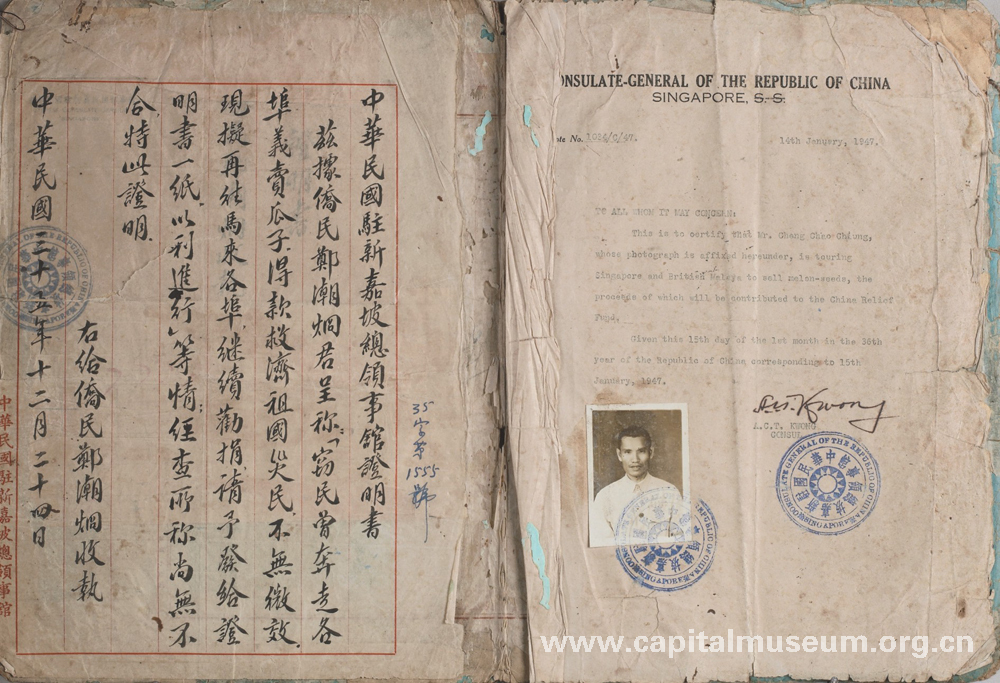 中華民國駐新嘉坡總領事館證明書
茲據僑民鄭潮烱君呈称:「窃民曾奔走各
埠義賣瓜子,得款救濟祖國災民,不無微效,
現擬再往馬來各埠,継續勸捐,請予發給證
明書一紙,以利進行」等情;經查所称尚無不
合,特此證明.
右給僑民鄭潮烱收執
中華民國三十五年十二月二十四日
中華民國駐新嘉坡總領事館
35字第1555號
ONSULATE-GENERAL OF THE REPUBLIC OF CHINA
SINGAPORE, S. S.
te No. 1024/C/47.
14th January, 1947.
TO ALL WHOM IT MAY CONCERN:
This is to certify that Mr. Cheng Chao Chiung,
whose photograph is affixed hereunder, is touring
Singapore and British Malaya to sell melon-seeds, the
proceeds of which will be contributed to the China Relief
Fund.
Given this 15th day of the 1st month in the 36th
year of the Republic of China corresponding to 15th
January, 1947.
A.C.T. Kwong
A.C.T. KWONG
CONSUL
CONSULATE GENERAL OF THE REPUBLIC OF CHINA
SINGAPORE
中華民國駐新嘉坡總領事館
www.capitalmuseum.org.cn